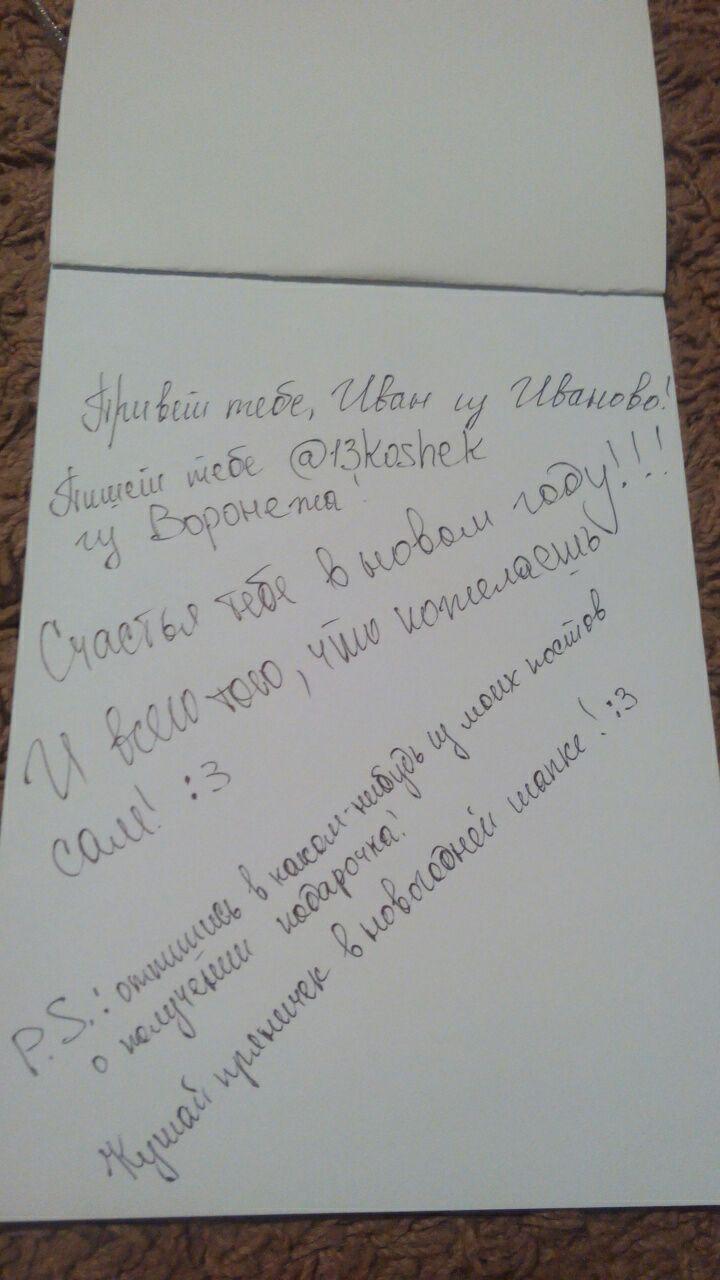 Привет тебе, Иван из Иваново!
Пишет тебе @13koshek
из Воронежа!
Счастья тебе в новом году!!!
И всего того, что пожелаешь
сам! :3
P.S.: отпишись в каком-нибудь из моих постов
о получении подарочка!
Кушай пряничек в новогодней шапке! :3